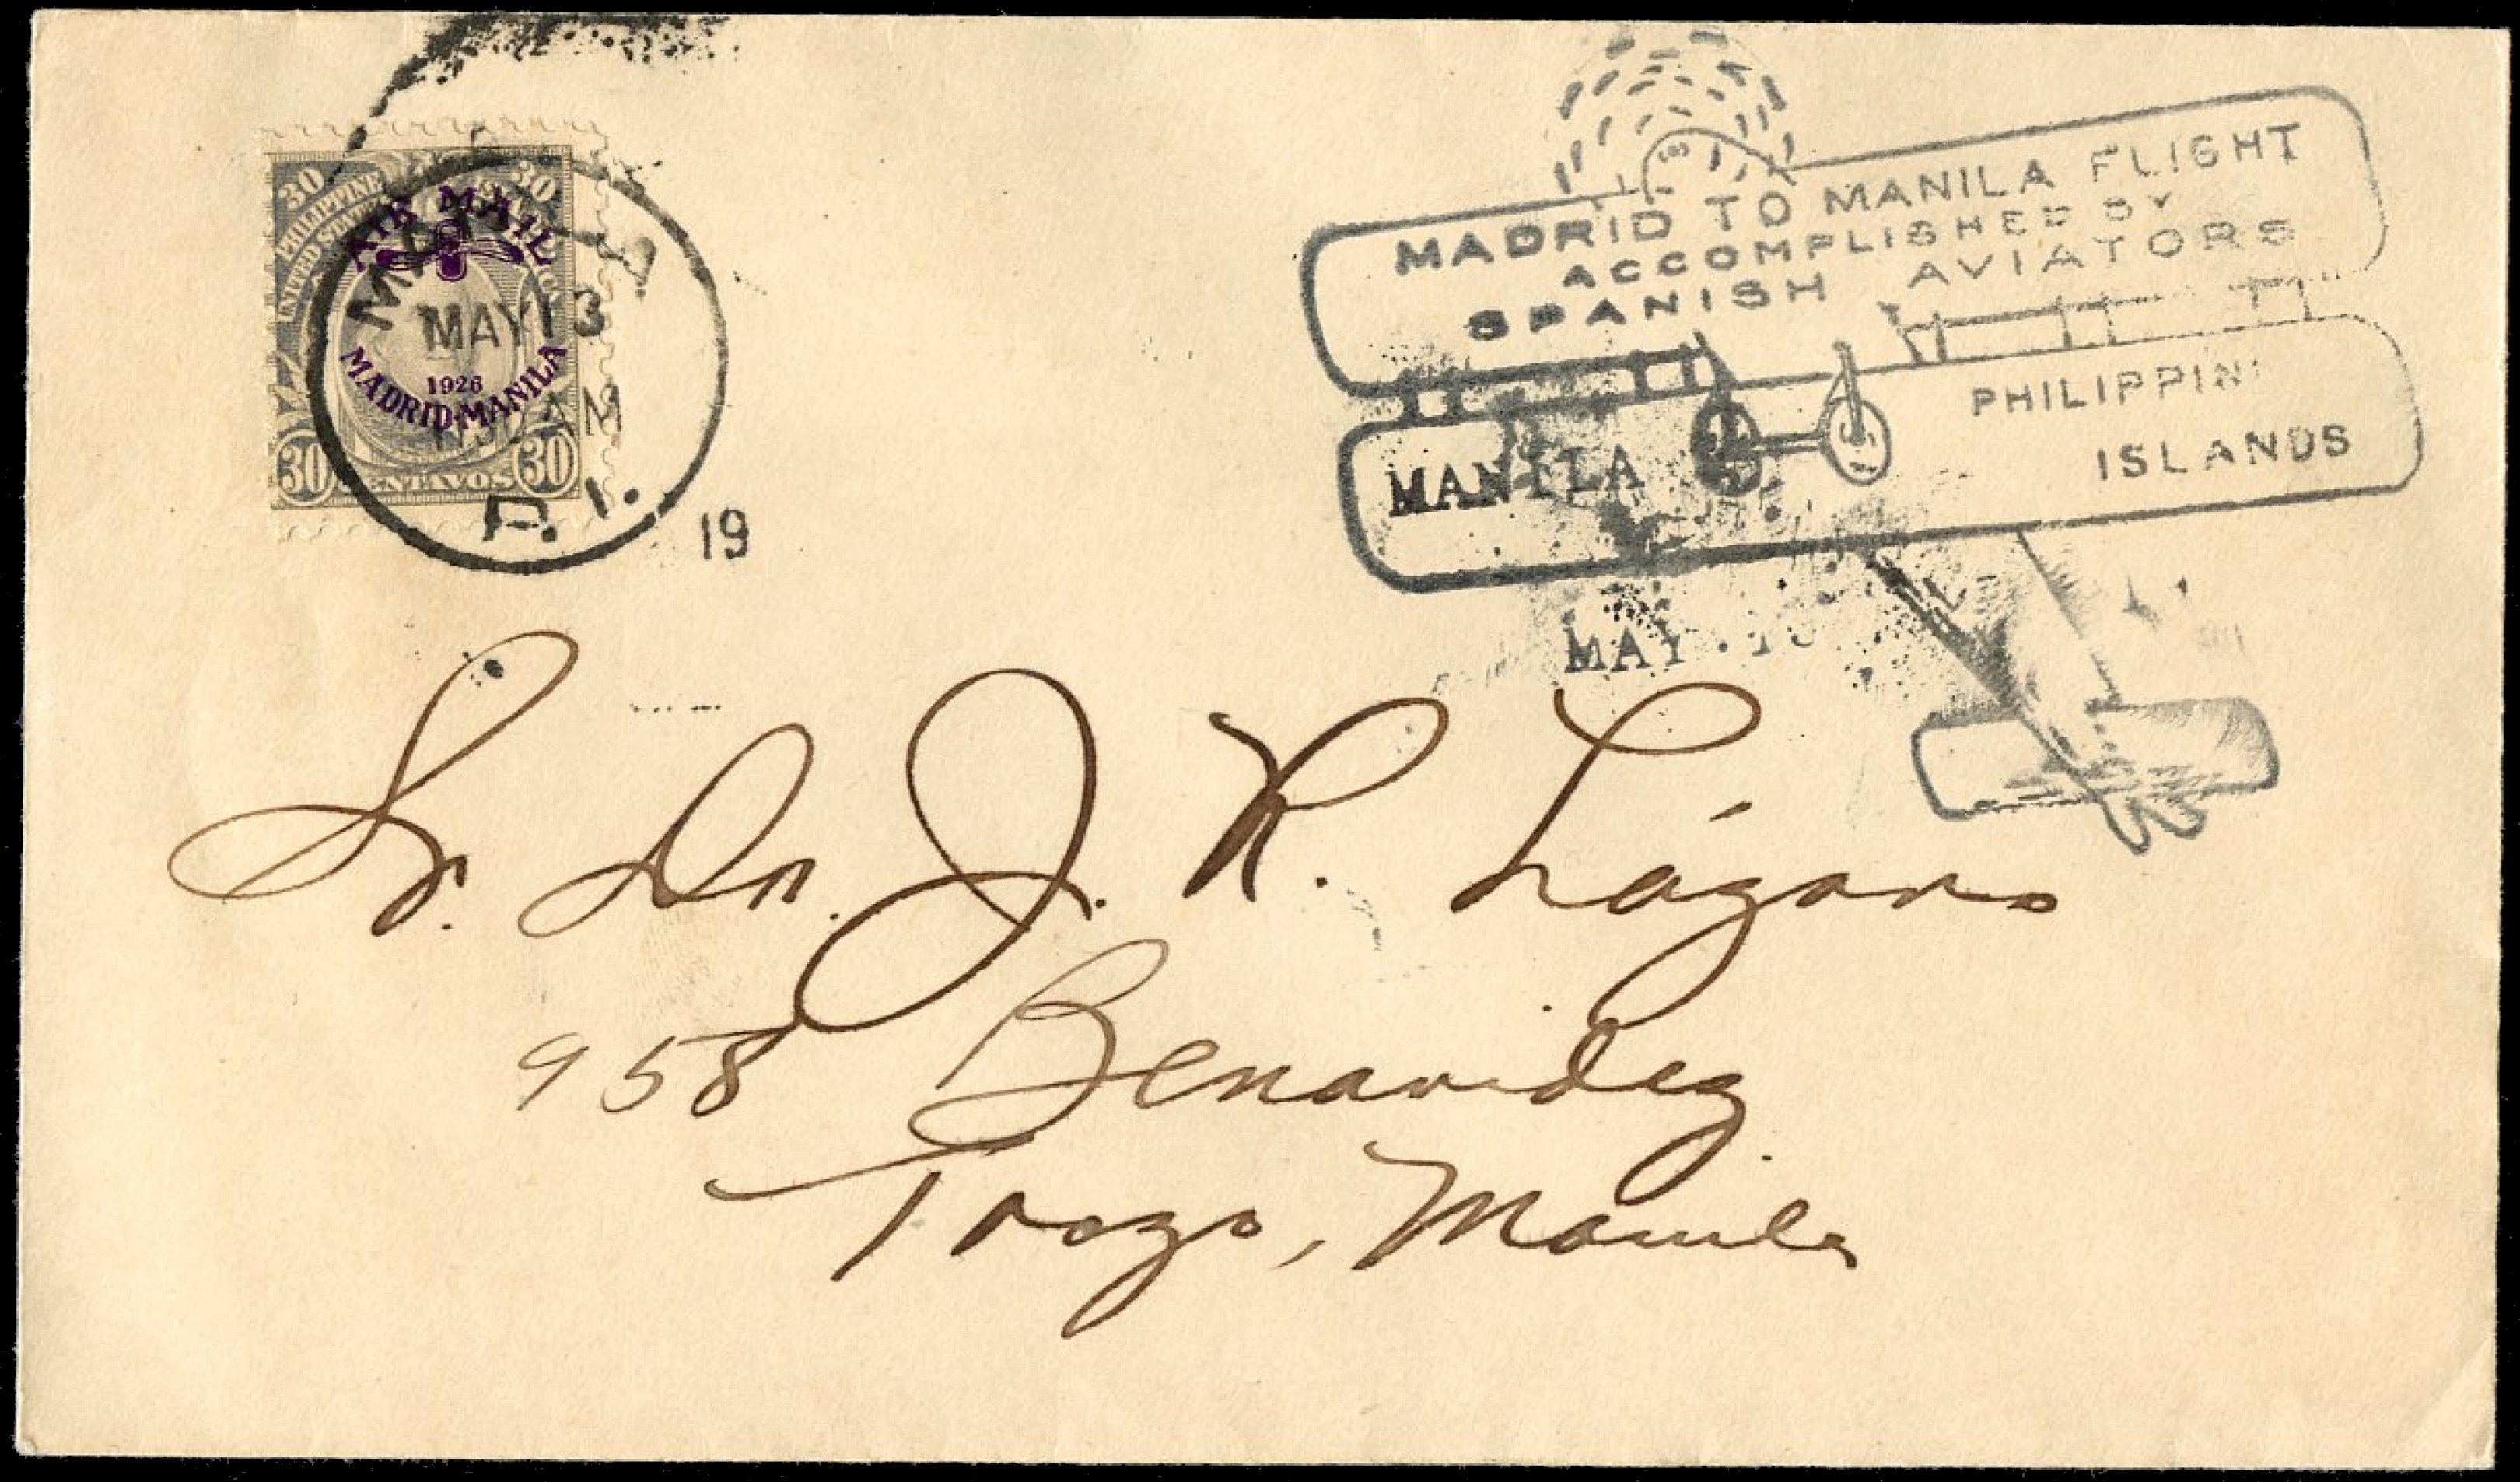 30 30
PHILIPPINE
UNITED STATES
AIR MAIL
1926
MADRID-MANILA
30 CENTAVOS 30
MANILA
MAY 13
AM
P. I.
19
MADRID TO MANILA FLIGHT
ACCOMPLISHED BY
SPANISH AVIATORS
MANILA
PHILIPPIN
ISLANDS
MAY
Sr. Dn. J. R. Lázaro
958 Benavidez
Trozo, Manila